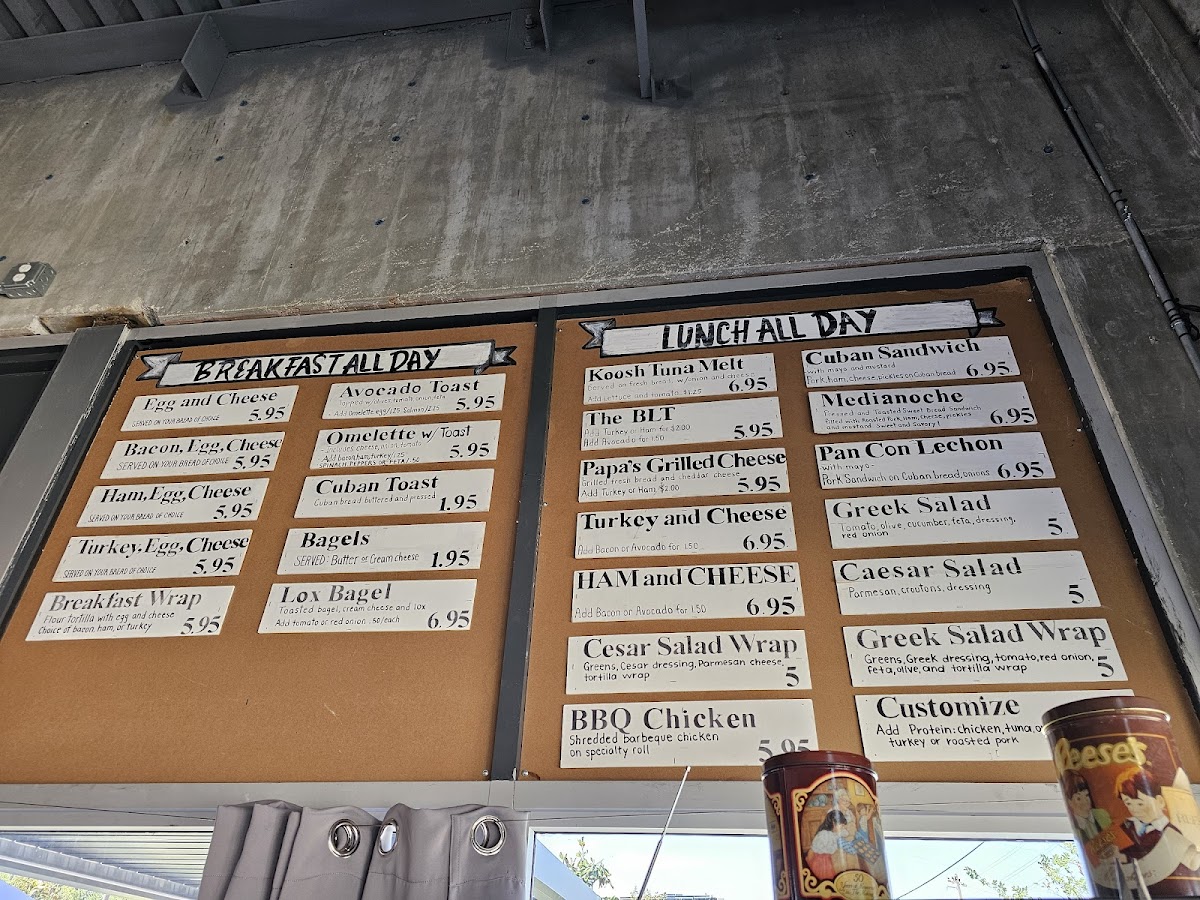 BREAKFAST ALL DAY
Egg and Cheese
SERVED ON YOUR BREAD OF CHOICE
5.95
Bacon, Egg, Cheese
SERVED ON YOUR BREAD OF CHOICE 5.95
Ham, Egg, Cheese
5.95
SERVED ON YOUR BREAD OF CHOICE
Turkey, Egg, Cheese
5.95
SERVED ON YOUR BREAD OF CHOICE
Breakfast Wrap
Flour tortilla with egg and cheese
Choice of bacon, ham, or turkey 5.95
Avocado Toast
5.95
Omelette w/ Toast
5.95
Cuban Toast
Cuban bread buttered and pressed
1.95
Bagels
SERVED: Butter or Cream cheese 1.95
Lox Bagel
Toasted bagel, cream cheese and lox
Add tomato or red onion .50/each 6.95
LUNCH ALL DAY
Koosh Tuna Melt
Served on fresh bread, w/onion and cheese
6.95
Add lettuce and tomato $1.25
The BLT
Add Turkey or Ham for $2.00
Add Avocado for 1.50 5.95
Papa's Grilled Cheese
Grilled fresh bread and cheddar cheese
Add Turkey or Ham $2.00 5.95
Turkey and Cheese
Add Bacon or Avocado for 1.50 6.95
HAM and CHEESE
Add Bacon or Avocado for 1.50 6.95
Cesar Salad Wrap
Greens, Cesar dressing, Parmesan cheese,
tortilla wrap 5
BBQ Chicken
Shredded barbeque chicken
on specialty roll 5.95
Cuban Sandwich
with mayo and mustard
Pork, ham, cheese, pickles on Cuban bread 6.95
Medianoche
Pressed and Toasted Sweet Bread Sandwich
filled with Roasted Pork, Ham, cheese, pickles
and mustard. Sweet and Savory! 6.95
Pan Con Lechon
with mayo-
Pork Sandwich on Cuban bread, onions 6.95
Greek Salad
Tomato, olive, cucumber, feta, dressing,
red onion 5
Caesar Salad
Parmesan, croutons, dressing 5
Greek Salad Wrap
Greens, Greek dressing, tomato, red onion,
feta, olive, and tortilla wrap 5
Customize
Add Protein: chicken, tuna,
turkey or roasted pork
Reese's